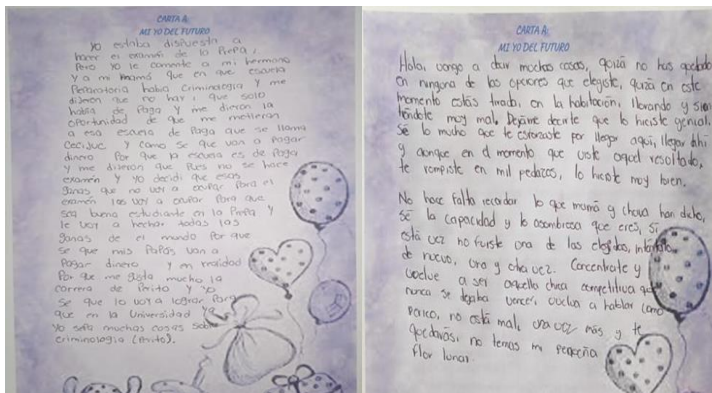 CARTA A:
MI YO DEL FUTURO
Yo estaba dispuesta a
hacer el examen de la Prepa,
Pero yo le comente a mi hermana
Y a mi mamá que en que escuela
Preparatoria había Criminología y me
dijeron que no hay, que solo
había de Paga y me dieron la
oportunidad de que me metieran
a esa escuela de Paga que se llama
Cecijuc y como se que van a pagar
dinero Por que la escuela es de Paga
y me dijeron que Pues no se hace
examen y yo decidí que esas
ganas que no voy a ocupar Para el
examen las voy a ocupar Para que
sea buena estudiante en la Prepa y
le voy a hechar todas las
ganas de el mundo Por que
se que mis Papás van a
Pagar dinero y en realidad
Por que me gusta mucho la
carrera de Perito y yo
se que lo voy a lograr Para
que en la Universidad
Yo sepa muchas cosas sobre
criminología (Perito).
CARTA A:
MI YO DEL FUTURO
Hola, vengo a decir muchas cosas, quizá no has quedado
en ninguna de las opciones que elegiste, quizá en este
momento estás tirada en la habitación, llorando y sin
tiéndote muy mal. Dejame decirte que lo hiciste genial.
Sé lo mucho que te esforzaste por llegar aquí, llegar ahí
y aunque en el momento que viste aquel resultado,
te rompiste en mil pedazos, lo hiciste muy bien.
No hace falta recordar lo que mamá y chava han dicho,
sé la capacidad y lo asombrosa que eres, si
está vez no fuiste una de las elegidas, inténtalo
de nuevo, una y otra vez. Concentrate y
vuelve a ser aquella chica competitiva que
nunca se dejaba vencer, vuelve a hablar como
perico, no está mal, una vez más y te
quedarás, no temas mi pequeña
flor lunar.